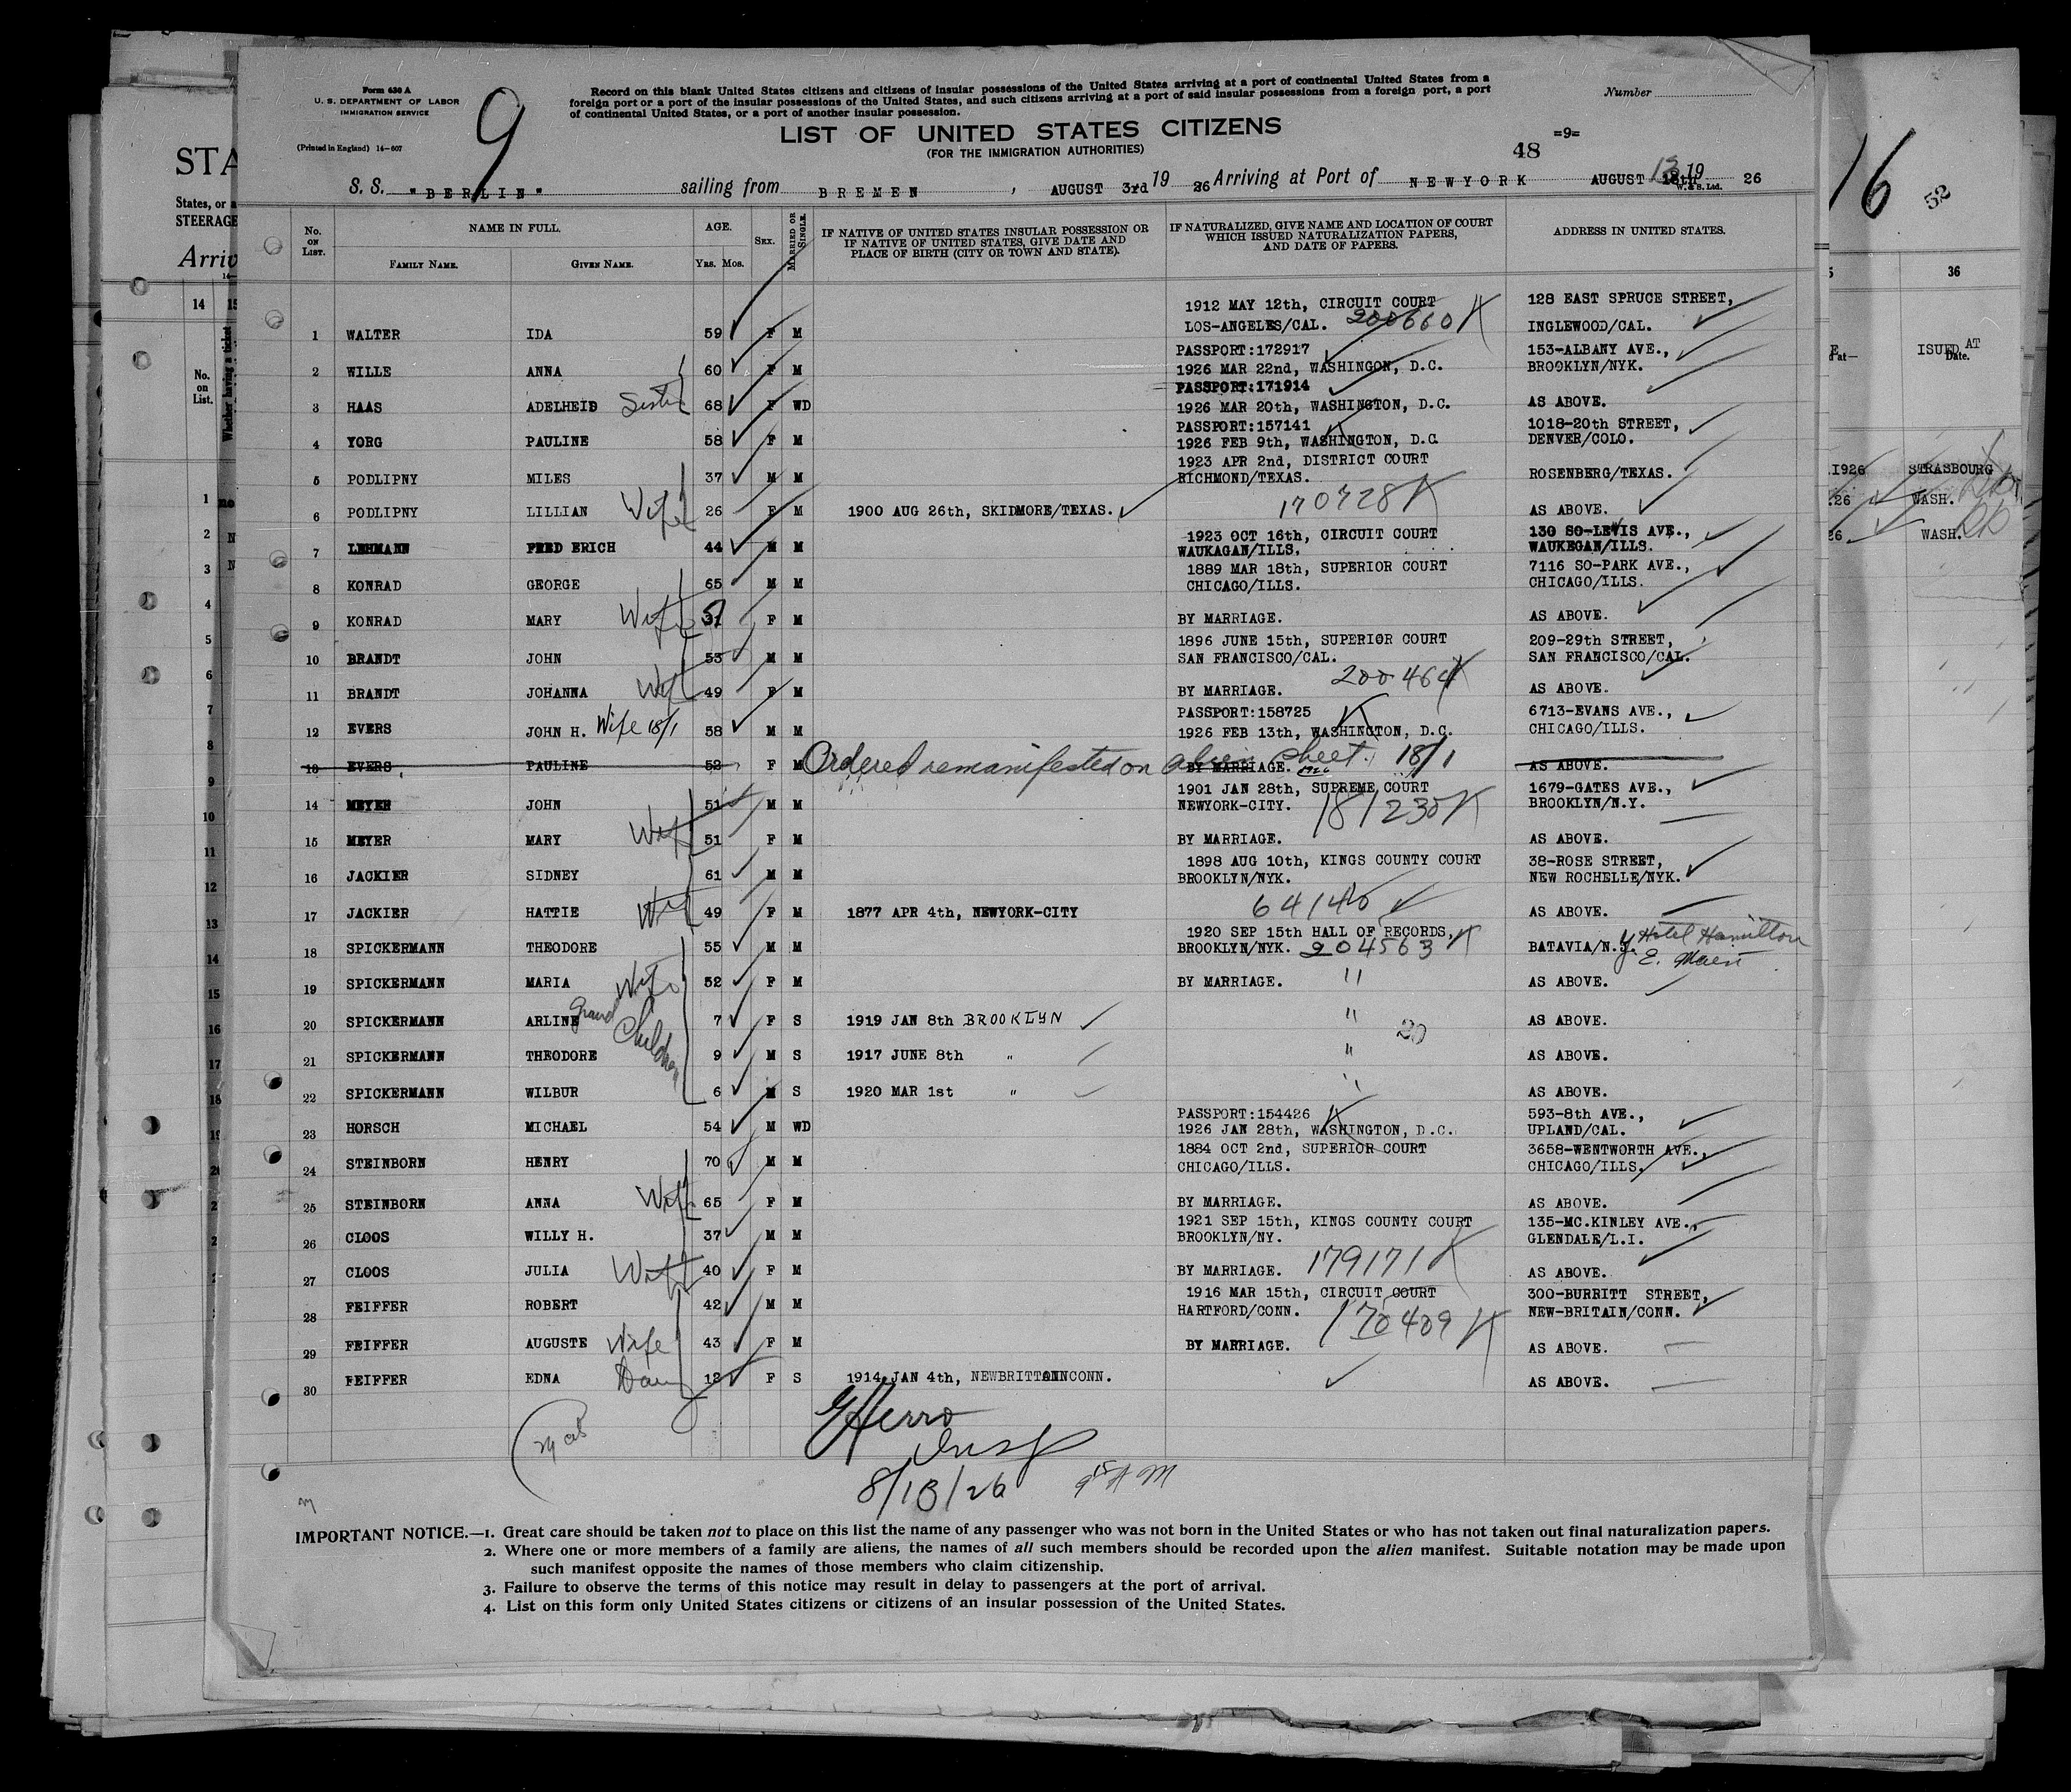 Form 630 A
U. S. DEPARTMENT OF LABOR
IMMIGRATION SERVICE
(Printed in England) 14-607
9
Record on this blank United States citizens and citizens of insular possessions of the United States arriving at a port of continental United States from a
foreign port or a port of the insular possessions of the United States, and such citizens arriving at a port of said insular possessions from a foreign port, a port
of continental United States, or a port of another insular possession.
Number
LIST OF UNITED STATES CITIZENS
(FOR THE IMMIGRATION AUTHORITIES)
48
=9=
S. S. "BERLIN" sailing from BREMEN, AUGUST 3rd 19 26 Arriving at Port of NEWYORK AUGUST 13 19 26
W. & S. Ltd.
No. on List. NAME IN FULL. Family Name. Given Name. AGE. Yrs. Mos. Sex. Married or Single. IF NATIVE OF UNITED STATES INSULAR POSSESSION OR IF NATIVE OF UNITED STATES, GIVE DATE AND PLACE OF BIRTH (CITY OR TOWN AND STATE). IF NATURALIZED, GIVE NAME AND LOCATION OF COURT WHICH ISSUED NATURALIZATION PAPERS, AND DATE OF PAPERS. ADDRESS IN UNITED STATES.
1912 MAY 12th, CIRCUIT COURT 128 EAST SPRUCE STREET,
1 WALTER IDA 59 F M LOS-ANGELES/CAL. 200660 INGLEWOOD/CAL.
PASSPORT:172917 153-ALBANY AVE.,
2 WILLE ANNA 60 F M 1926 MAR 22nd, WASHINGON, D.C. BROOKLYN/NYK.
PASSPORT:171914
3 HAAS ADELHEID Sister 68 F WD 1926 MAR 20th, WASHINGTON, D.C. AS ABOVE.
PASSPORT:157141 1018-20th STREET,
4 YORG PAULINE 58 F M 1926 FEB 9th, WASHINGTON, D.C. DENVER/COLO.
1923 APR 2nd, DISTRICT COURT
5 PODLIPNY MILES 37 M M RICHMOND/TEXAS. ROSENBERG/TEXAS.
6 PODLIPNY LILLIAN Wife 26 F M 1900 AUG 26th, SKIDMORE/TEXAS. 170728 AS ABOVE.
1923 OCT 16th, CIRCUIT COURT 130 SO-LEWIS AVE.,
7 LEHMANN FRED ERICH 44 M M WAUKAGAN/ILLS. WAUKEGAN/ILLS.
1889 MAR 18th, SUPERIOR COURT 7116 SO-PARK AVE.,
8 KONRAD GEORGE 65 M M CHICAGO/ILLS. CHICAGO/ILLS.
9 KONRAD MARY Wife F M BY MARRIAGE. AS ABOVE.
1896 JUNE 15th, SUPERIOR COURT 209-29th STREET,
10 BRANDT JOHN 53 M M SAN FRANCISCO/CAL. SAN FRANCISCO/CAL.
11 BRANDT JOHANNA Wife 49 F M BY MARRIAGE. 200464 AS ABOVE.
PASSPORT:158725 6713-EVANS AVE.,
12 EVERS JOHN H. Wife 18/1 58 M M 1926 FEB 13th, WASHINGTON, D.C. CHICAGO/ILLS.
13 EVERS, PAULINE 52 F M Ordered remanifested on alien sheet. 18/1 BY MARRIAGE. AS ABOVE.
1901 JAN 28th, SUPREME COURT 1679-GATES AVE.,
14 MEYER JOHN 51 M M NEWYORK-CITY. 181230 BROOKLYN/N.Y.
15 MEYER MARY Wife 51 F M BY MARRIAGE. AS ABOVE.
1898 AUG 10th, KINGS COUNTY COURT 38-ROSE STREET,
16 JACKIER SIDNEY 61 M M BROOKLYN/NYK. NEW ROCHELLE/NYK.
17 JACKIER HATTIE Wife 49 F M 1877 APR 4th, NEWYORK-CITY AS ABOVE.
1920 SEP 15th HALL OF RECORDS, Hotel Hamilton
18 SPICKERMANN THEODORE 55 M M BROOKLYN/NYK. 204563 BATAVIA/N.Y. E. Main
19 SPICKERMANN MARIA Wife 52 F M BY MARRIAGE. " AS ABOVE.
20 SPICKERMANN ARLINE Grand Children 7 F S 1919 JAN 8th BROOKLYN " 20 AS ABOVE.
21 SPICKERMANN THEODORE 9 M S 1917 JUNE 8th " " AS ABOVE.
22 SPICKERMANN WILBUR 6 M S 1920 MAR 1st " " AS ABOVE.
PASSPORT:154426 593-8th AVE.,
23 HORSCH MICHAEL 54 M WD 1926 JAN 28th, WASHINGTON, D.C. UPLAND/CAL.
1884 OCT 2nd, SUPERIOR COURT 3658-WENTWORTH AVE.,
24 STEINBORN HENRY 70 M M CHICAGO/ILLS. CHICAGO/ILLS.
25 STEINBORN ANNA Wife 65 F M BY MARRIAGE. AS ABOVE.
1921 SEP 15th, KINGS COUNTY COURT 135-MC.KINLEY AVE.,
26 CLOOS WILLY H. 37 M M BROOKLYN/NY. GLENDALE/L.I.
27 CLOOS JULIA Wife 40 F M BY MARRIAGE. 179171 AS ABOVE.
1916 MAR 15th, CIRCUIT COURT 300-BURRITT STREET,
28 FEIFFER ROBERT 42 M M HARTFORD/CONN. 170409 NEW-BRITAIN/CONN.
29 FEIFFER AUGUSTE Wife 43 F M BY MARRIAGE. AS ABOVE.
30 FEIFFER EDNA Dau 12 F S 1914 JAN 4th, AS ABOVE.
Insp
8/13/26 9 15 AM
IMPORTANT NOTICE.—1. Great care should be taken not to place on this list the name of any passenger who was not born in the United States or who has not taken out final naturalization papers.
2. Where one or more members of a family are aliens, the names of all such members should be recorded upon the alien manifest. Suitable notation may be made upon
such manifest opposite the names of those members who claim citizenship.
3. Failure to observe the terms of this notice may result in delay to passengers at the port of arrival.
4. List on this form only United States citizens or citizens of an insular possession of the United States.
STA
States, or a
STEERAGE
Arriv
14 15
No. on List.
Whether having a ticket
1
2
3
4
5
6
7
8
9
10
11
12
13
14
15
16
17
18
16
52
36
ISUED AT
Date.
.1926 STRASBOURG
.26 WASH.
26 WASH.